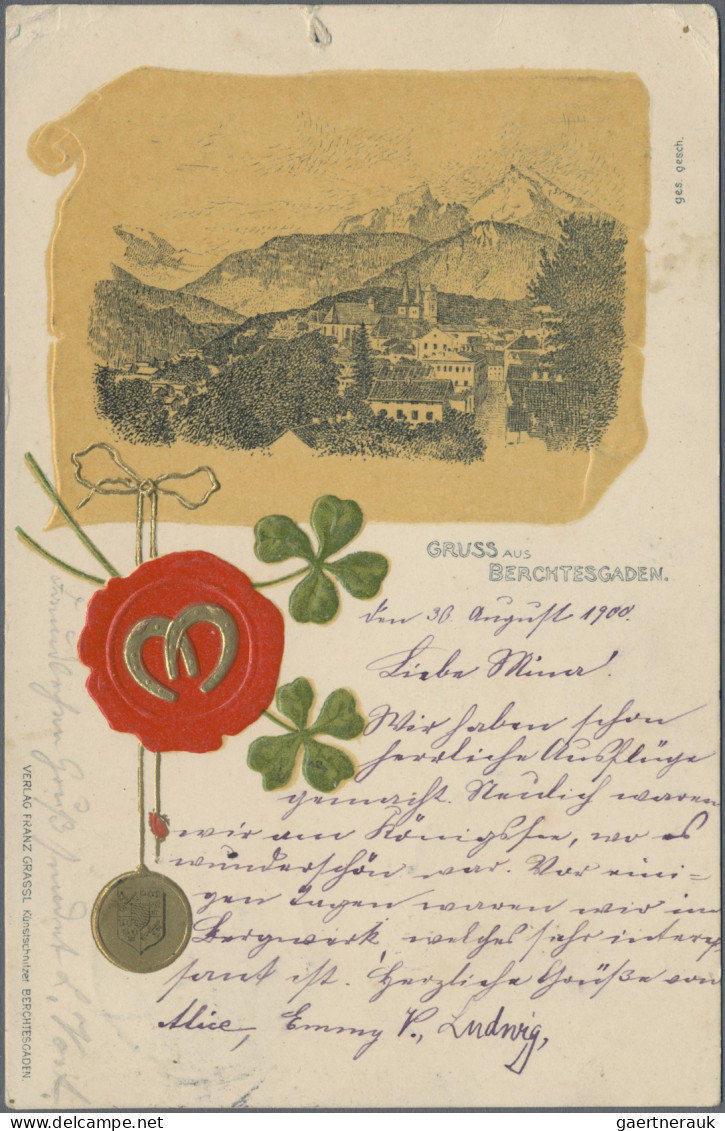 ges. gesch.
GRUSS AUS
BERCHTESGADEN.
den 30. August 1900.
Liebe Mina!
Wir haben schon
herrliche Ausflüge
gemacht. Neulich waren
wir am Königssee, wo es
wunderschön war. Vor eini=
gen Tagen waren wir im
Bergwerk, welches sehr interes
sant ist. Herzliche Grüße von
Alice, Emmy V., Ludwig,
Gruß sendet
VERLAG FRANZ GRASSL Kunstschnitzer BERCHTESGADEN.
gaertnerauk @ delcampe.net